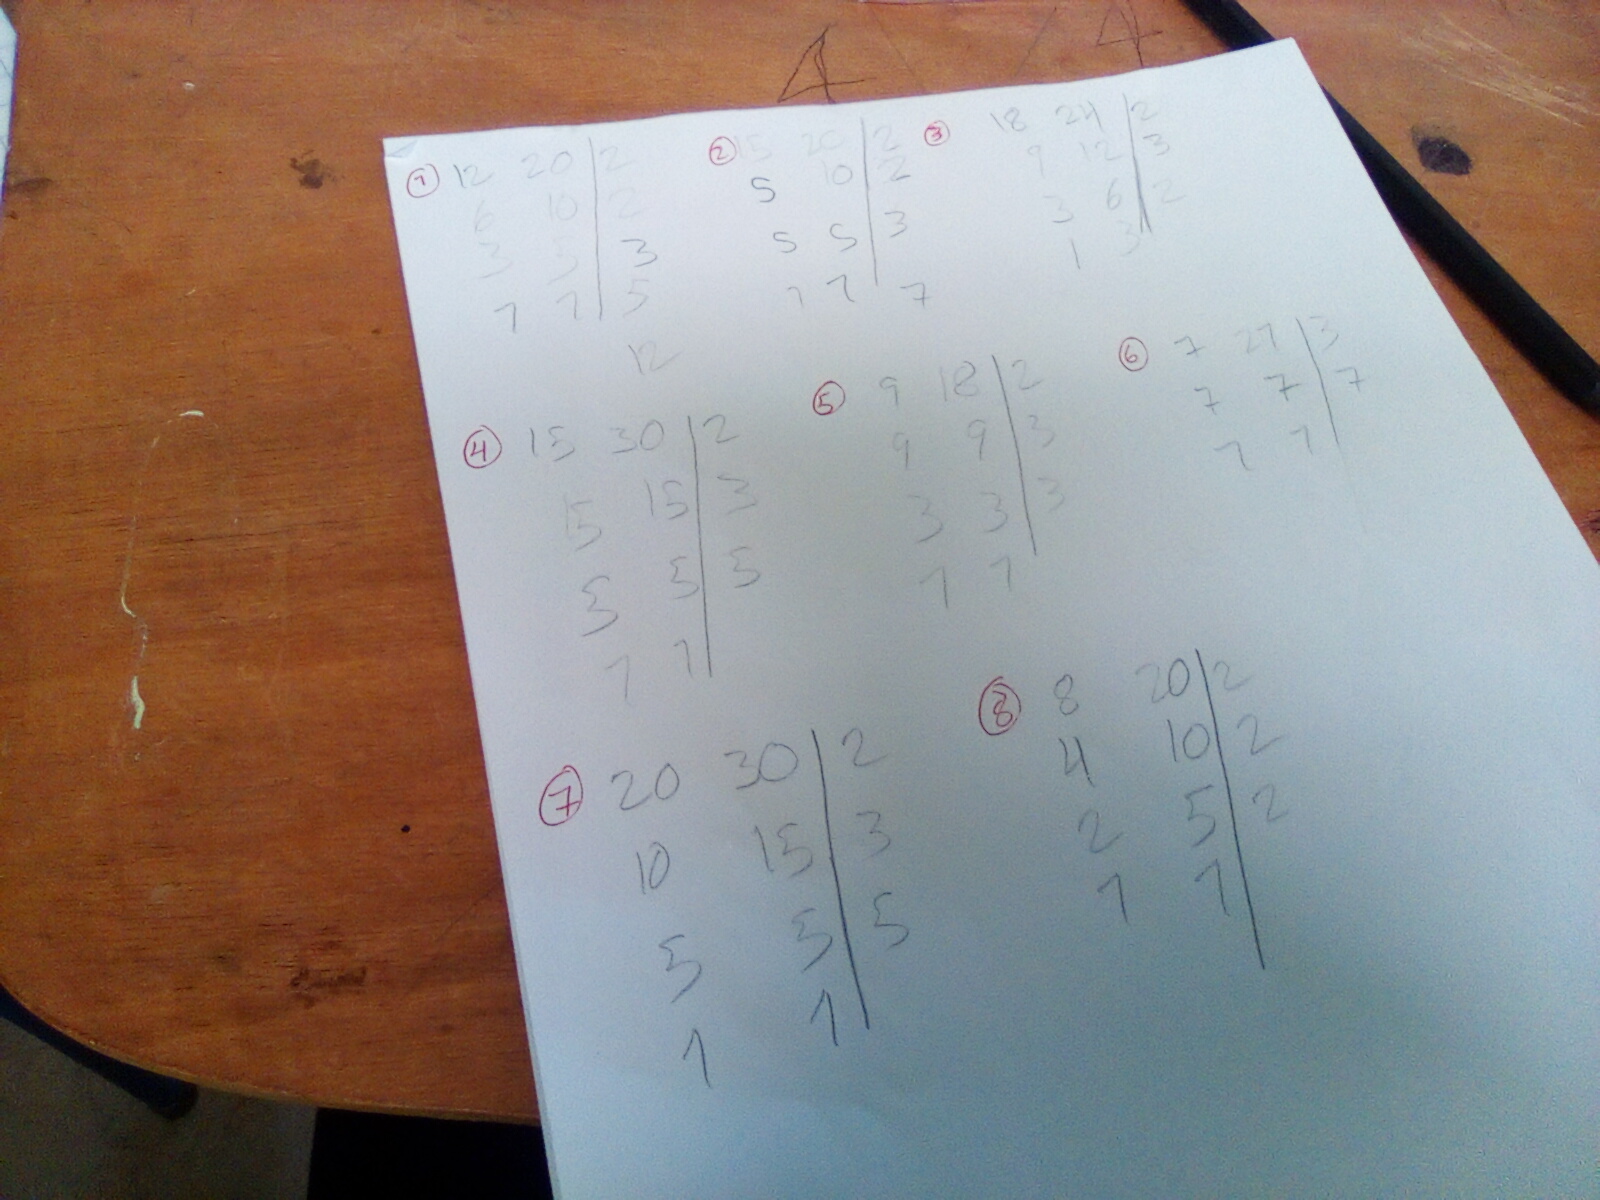 A A
① 12 20 | 2
6 10 | 2
3 5 | 3
1 1 | 5
12
② 15 20 | 2
5 10 | 2
5 5 | 3
1 1 7
③ 18 24 | 2
9 12 | 3
3 6 | 2
1 3
④ 15 30 | 2
15 15 | 3
5 5 | 5
1 1
⑤ 9 18 | 2
9 9 | 3
3 3 | 3
1 1
⑥ 7 21 | 3
7 7 | 7
1 1
⑦ 20 30 | 2
10 15 | 3
5 5 | 5
1 1
⑧ 8 20 | 2
4 10 | 2
2 5 | 2
1 1